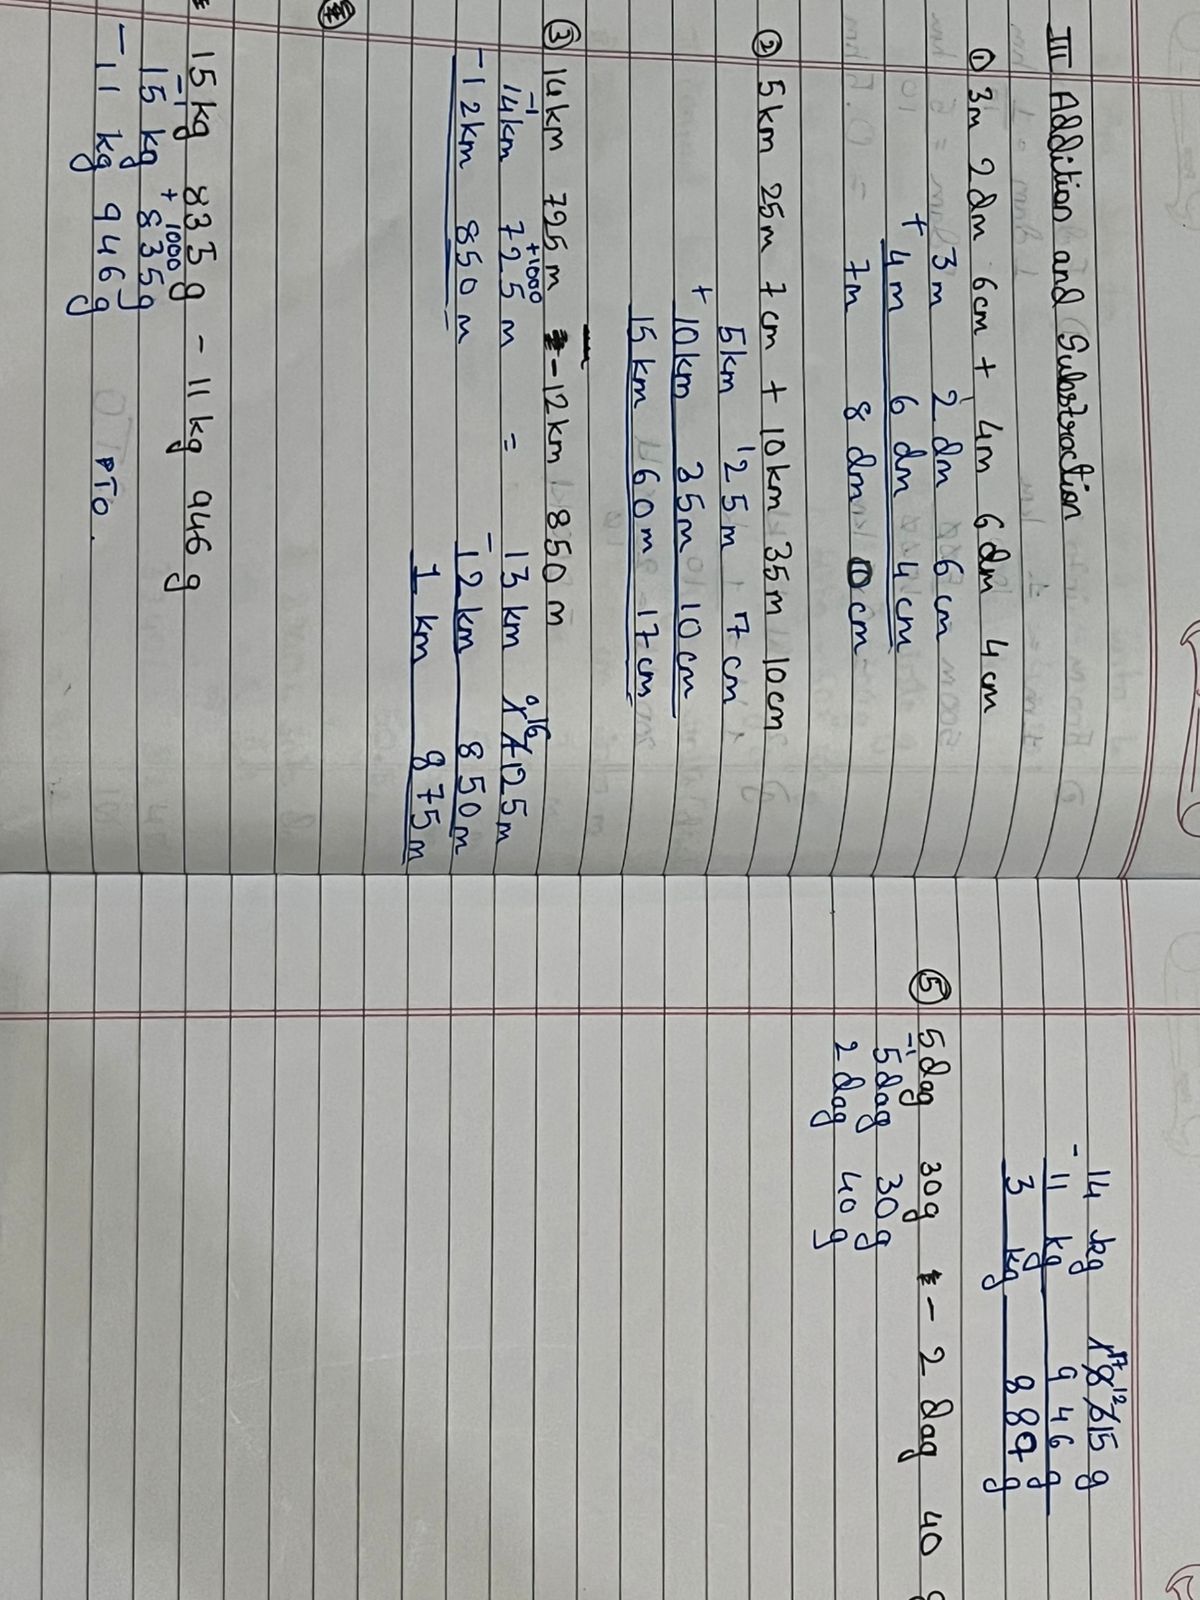 III Addition and Substraction
① 3m 2dm 6cm + 4m 6dm 4cm
3m 2dm 6cm
+ 4m 6dm 4cm
7m 8dm 0cm
② 5km 25m 7cm + 10km 35m 10cm
5km 25m 7cm
+ 10km 35m 10cm
15km 60m 17cm
③ 14km 725m - 12km 850m
-1 +1000
14km 725m = 13km 1725m
-12km 850m - 12km 850m
1km 875m
15kg 835g - 11kg 946g
-1 +1000
15kg 835g
-11kg 946g
PTO.
14 kg
- 11 kg 946g
3 kg 889g
⑤ 5dag 30g - 2dag 40
-1
5dag 30g
2dag 40g